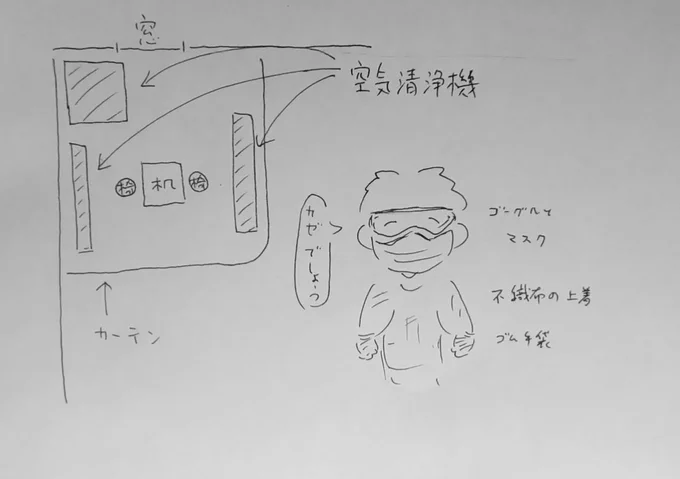 窓
空気清浄機
椅
机
椅
カゼでしょう
ゴーグルと
マスク
不織布の上着
ゴム手袋
カーテン